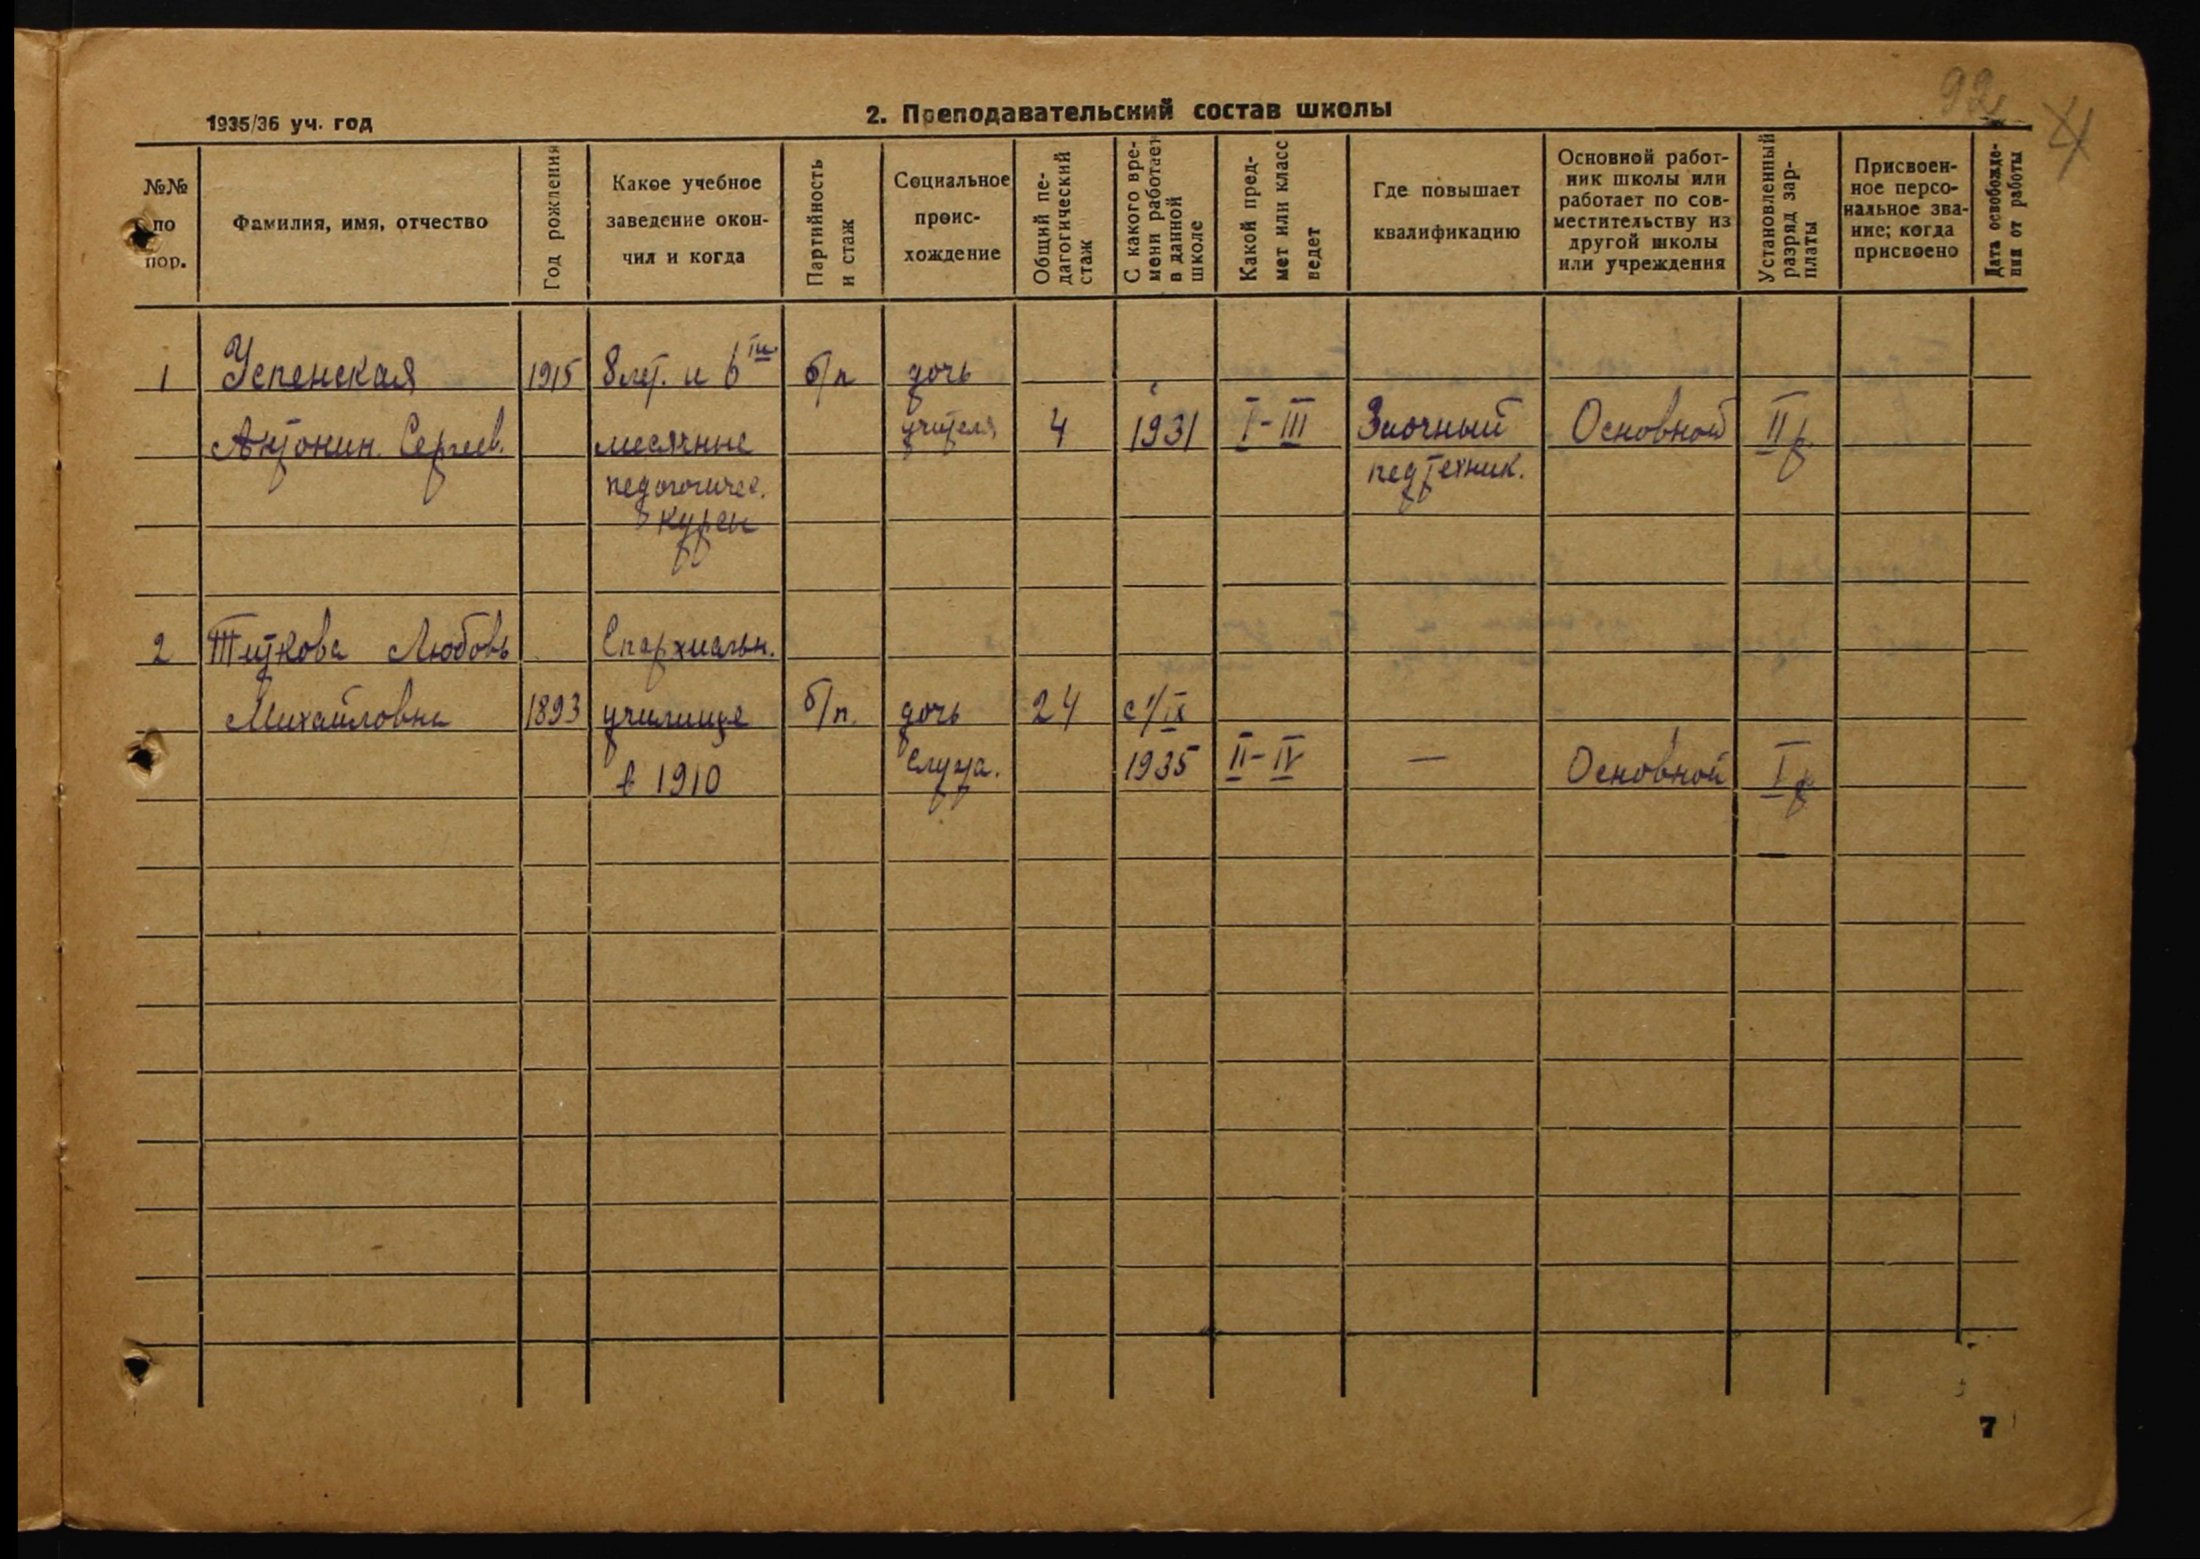 92
4
1935/36 уч. год
2. Преподавательский состав школы
№№ по пор.
Фамилия, имя, отчество
Год рождения
Какое учебное заведение окон-чил и когда
Партийность и стаж
Социальное проис-хождение
Общий пе-дагогический стаж
С какого вре-мени работает в данной школе
Какой пред-мет или класс ведет
Где повышает квалификацию
Основной работ-ник школы или работает по сов-местительству из другой школы или учреждения
Установленный разряд зар-платы
Присвоен-ное персо-нальное зва-ние; когда присвоено
Дата освобожде-ния от работы
1 Успенская 1915 8 лет. и 6ти б/п дочь
Антонин. Сергеев. месячные учителя 4 1931 I-III Заочный Основной II р.
педогогичес. педтехник.
курсы
2 Титкова Любовь Епархиальн.
Михайловна 1893 училище б/п. дочь 24 с 1/IX
в 1910 служа. 1935 II-IV — Основной I р
7